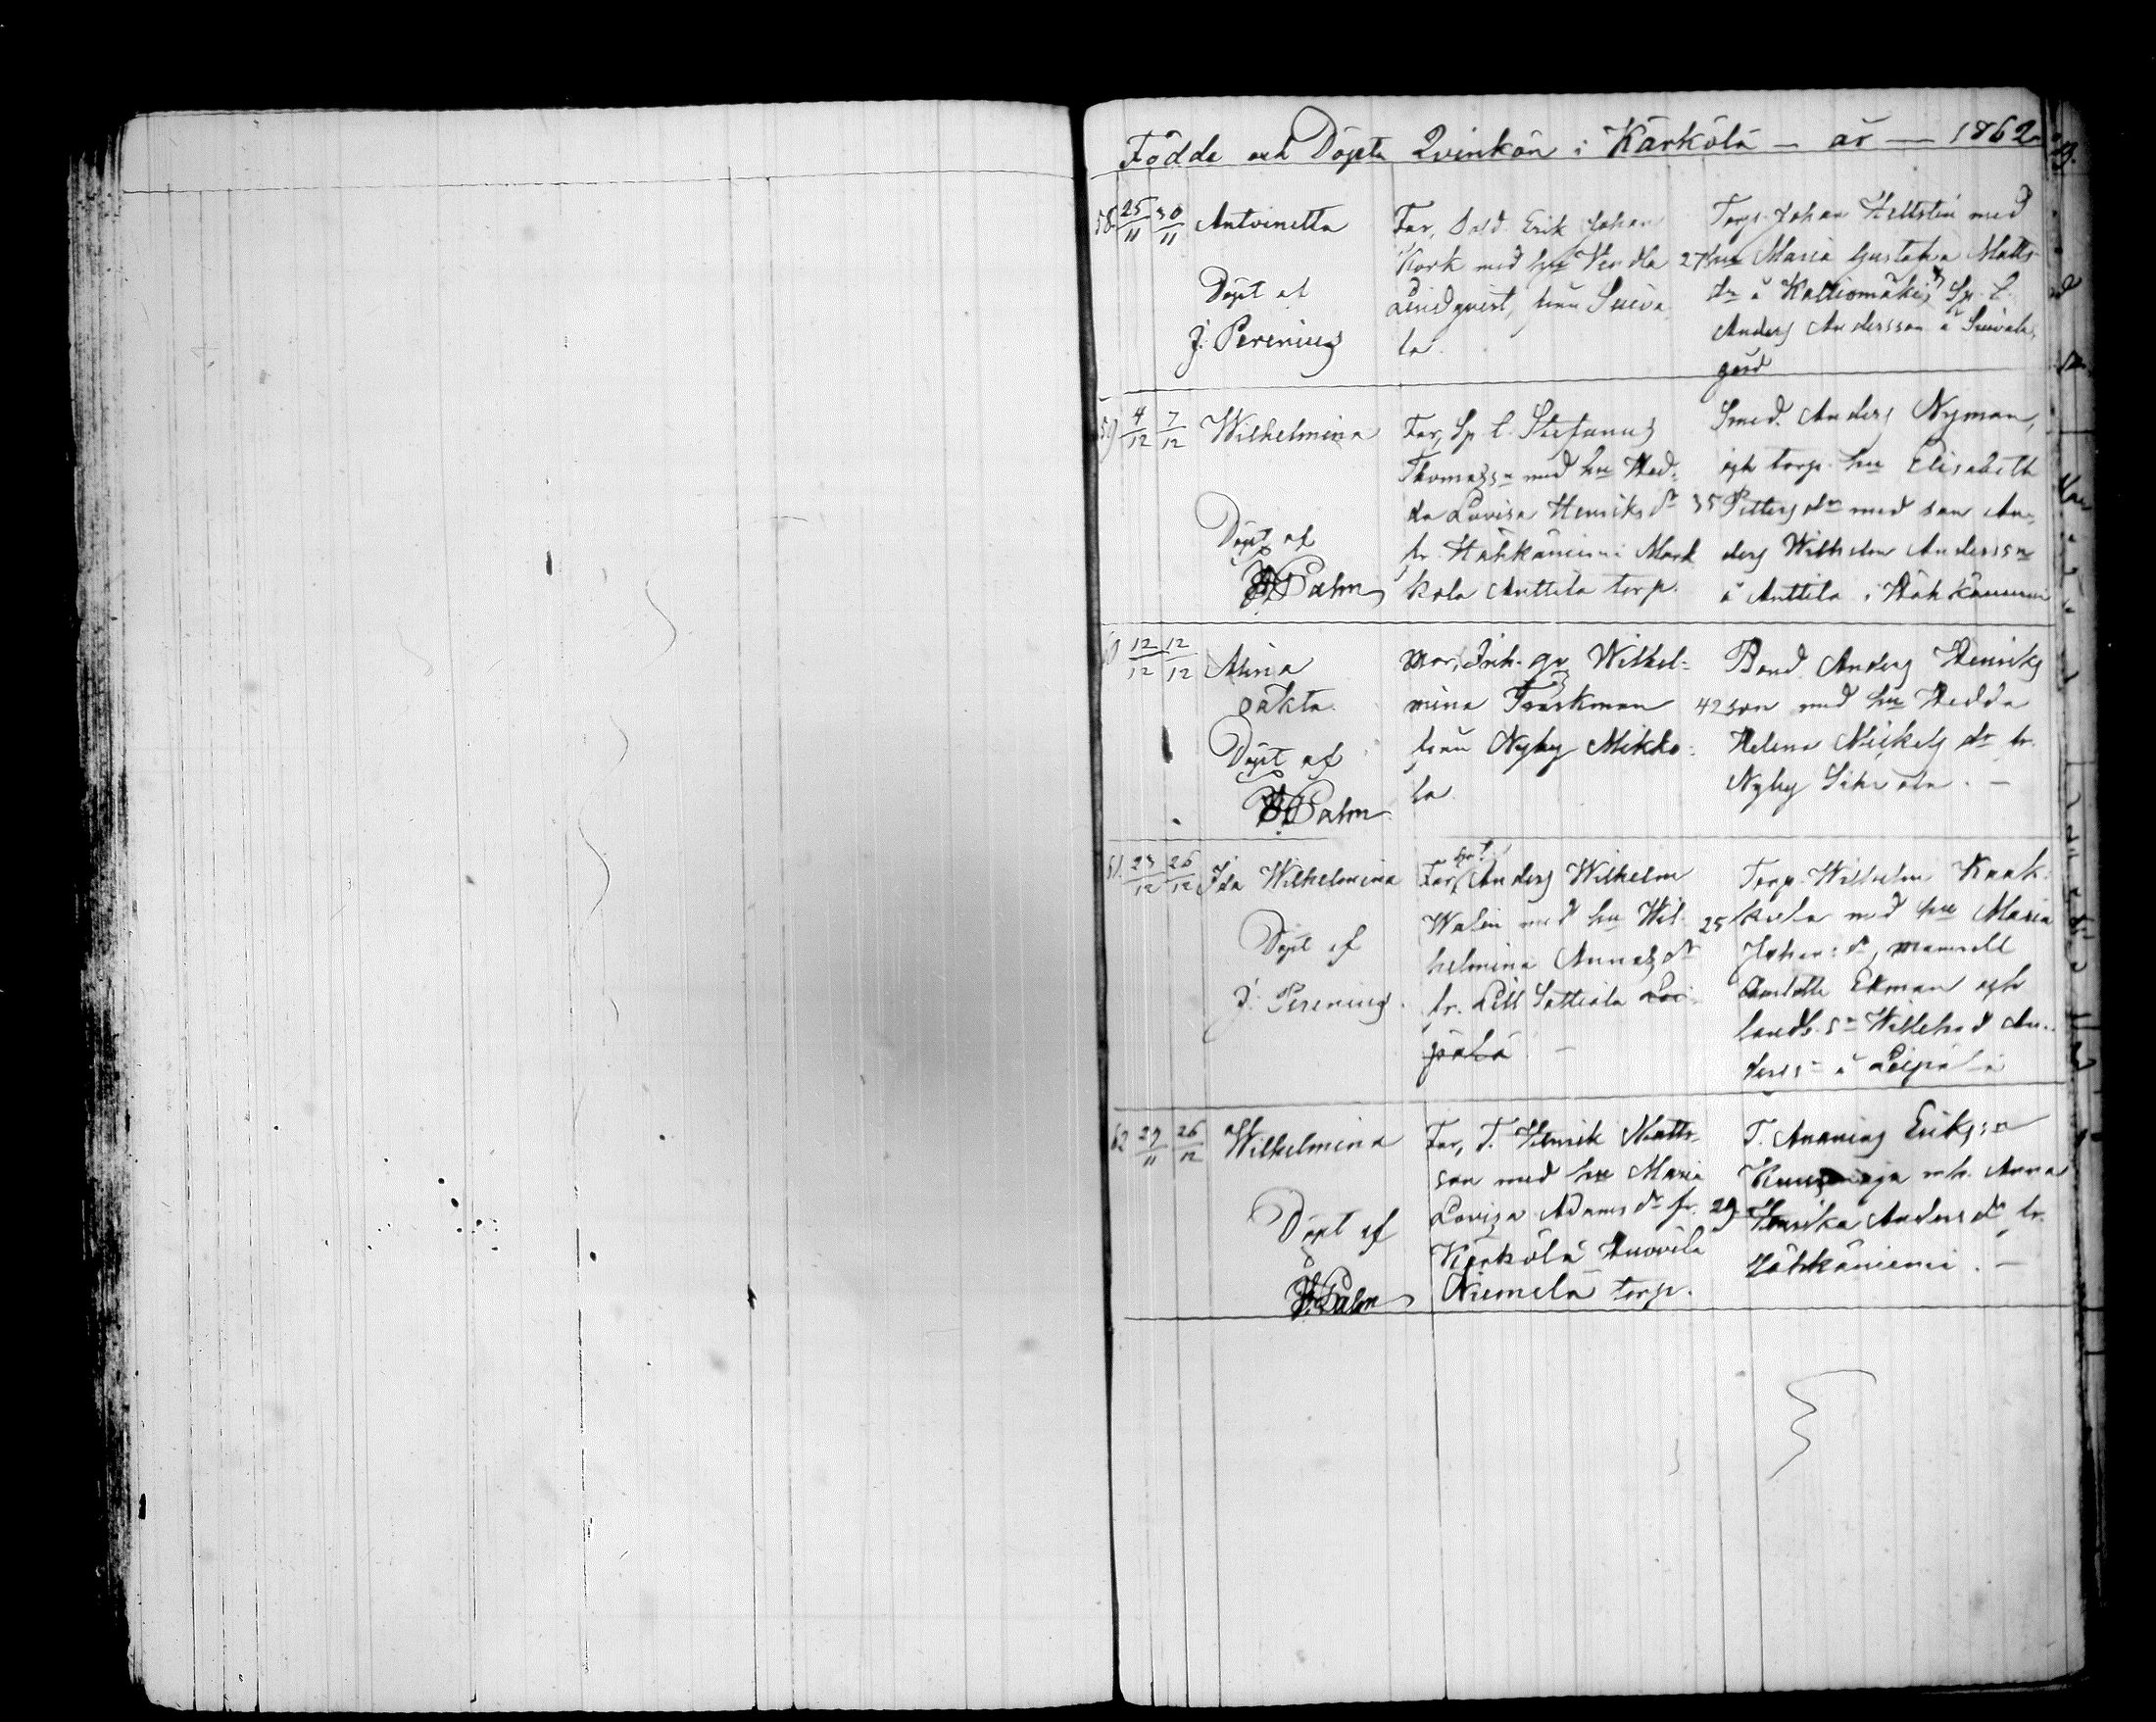 Födde och Döpta Qvinkön i Kärkölä — år — 1862
58. 25/11 30/11 Antoinetta
Döpt af
J. Perenius
Far, Sold. Erik Johan
Kork med hu Vendla 27
Lindqvist, från Suova
la.
Torp. Johan Hellsten med
hu Maria Gustava Matts
dr å Kalliomäki, Sp. l.
Anders Andersson å
gård
59 4/12 7/12 Wilhelmina
Döpt af
Palm
Far, Sp. l. Stefanus
Thomass n med hu Hed-
da Lovisa Henriks dr 35
fr. Hähkäniemi Mark
kola Anttila torp.
Smed. Anders Nyman,
och torp. hu Elisabeth
Petters dr med son An-
ders Wilhelm Anderss n
å Anttila i Hähkäniemi
60 12/12 12/12 Alina
oäkta.
Döpt af
Palm
Mor, Inh. qv Wilhel-
mina Traskman 42
från Nyby Mikko-
la.
Bond. Anders Henriks
son med hu Hedda
Helena Mickels dr fr.
Nyby —
61. 23/12 26/12 Ida Wilhelmina
Döpt af
J. Perenius.
Far, Anders Wilhelm
Walin med hu Wil- 25
helmina Annas dr
fr. Lill Sattiala Lei
pälä —
Torp. Wilhelm Kaak-
kola med hu Maria
Johans dr, mamsell
Charlotta Ekman och
landb. s n Willehad An-
derss n å Leipälä
62 29/11 26/12 Wilhelmina
Döpt af
Palm
Far, T. Henrik Matts-
son med hu Maria
Lovisa Adams dr fr. 29
Kärkölä Huovila
Niemelä torp.
T. Ananias Eriks s n
m h. Anna
Henrika Anders dr fr.
Hähkäniemi. —